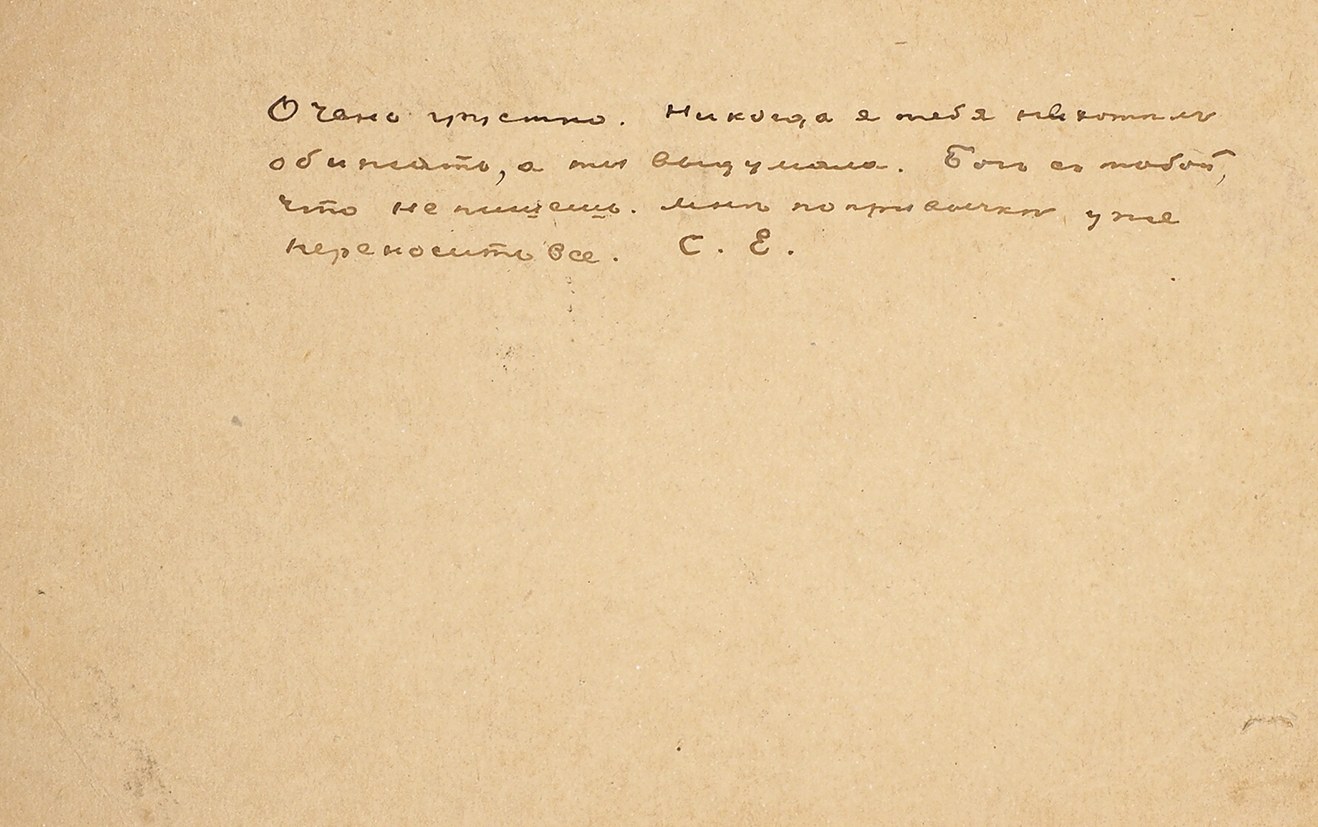 Очень грустно. Никогда я тебя не хотелъ
обижать, а ты выдумала. Богъ съ тобой,
что не пишешь. Мнѣ по привычкѣ уже
переносить все. С. Е.